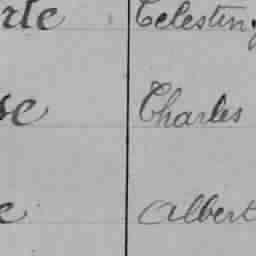 rte Celestin
se Charles
e Albert